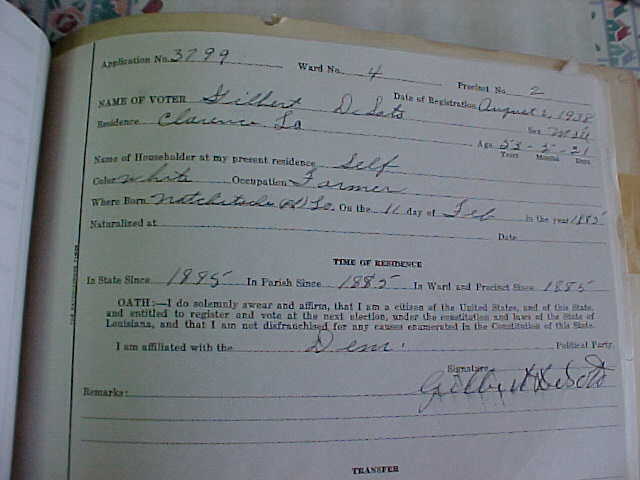 Application No. 3799 Ward No. 4 Precinct No. 2
NAME OF VOTER Gilbert DeSoto Date of Registration August 2, 1938
Residence Clarence La Sex Male
Age 53 - 5 - 21
Years Months Days
Name of Householder at my present residence Self
Color White Occupation Farmer
Where Born Natchitoches (P) La. On the 11 day of Feb in the year 1885
Naturalized at Date
TIME OF RESIDENCE
In State Since 1885 In Parish Since 1885 In Ward and Precinct Since 1885
OATH:—I do solemnly swear and affirm, that I am a citizen of the United States, and of this State,
and entitled to register and vote at the next election, under the constitution and laws of the State of
Louisiana, and that I am not disfranchised for any causes enumerated in the Constitution of this State.
I am affiliated with the Dem. Political Party.
Signature Gilbert DeSoto
Remarks:
TRANSFER